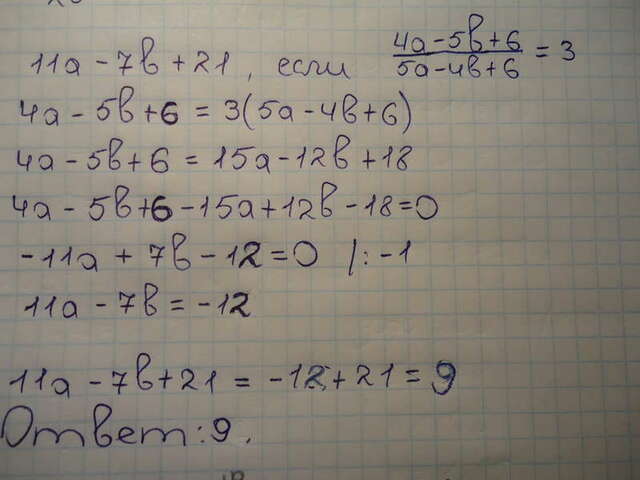 11a - 7b + 21, если (4a - 5b + 6)/(5a - 4b + 6) = 3
4a - 5b + 6 = 3(5a - 4b + 6)
4a - 5b + 6 = 15a - 12b + 18
4a - 5b + 6 - 15a + 12b - 18 = 0
-11a + 7b - 12 = 0 |: -1
11a - 7b = -12
11a - 7b + 21 = -12 + 21 = 9
Ответ: 9.